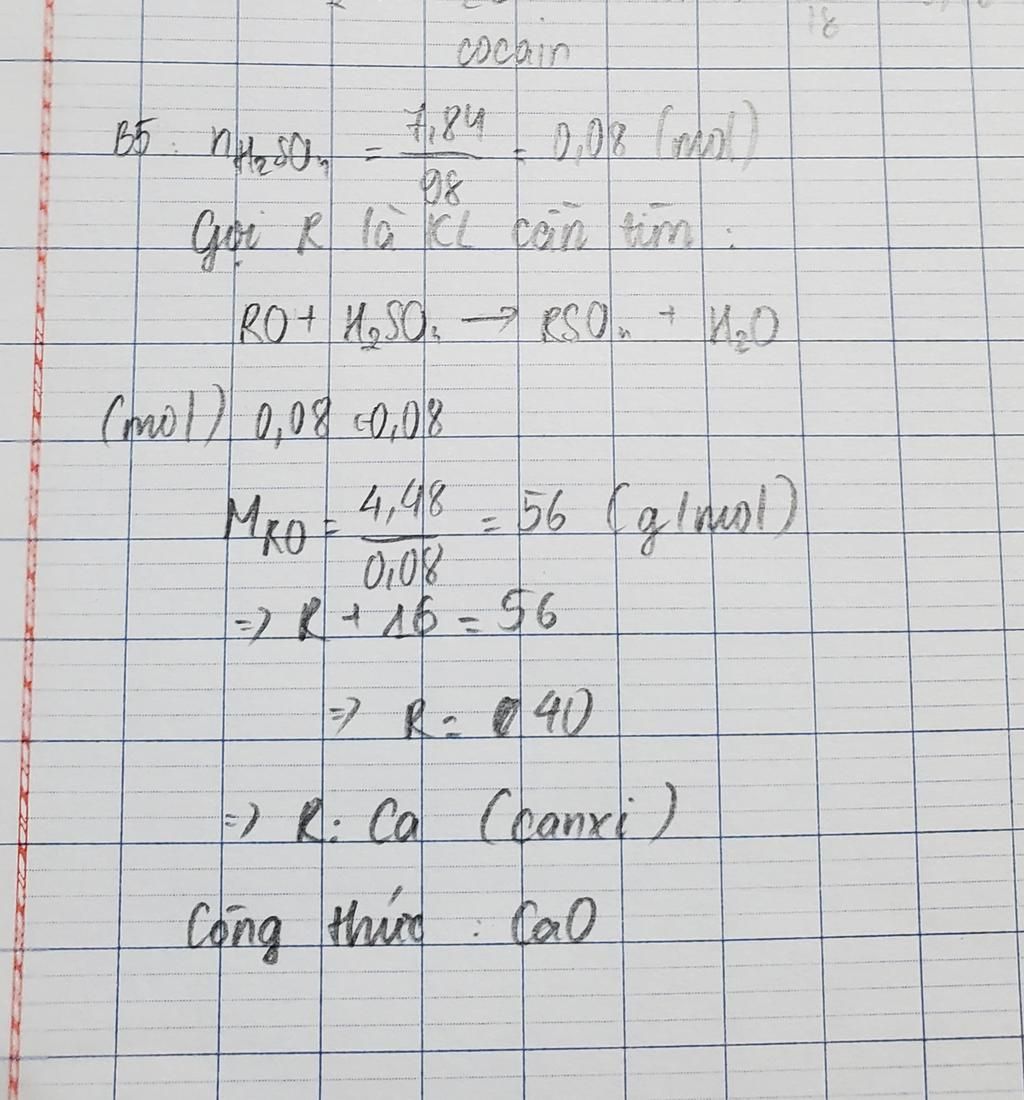 18
cocain
B5: nH₂SO₄ = 7,84/98 = 0,08 (mol)
Gọi R là KL cần tìm:
RO + H₂SO₄ → RSO₄ + H₂O
(mol) 0,08 ← 0,08
M_RO = 4,48/0,08 = 56 (g/mol)
=> R + 16 = 56
=> R = 40
=> R: Ca (canxi)
Công thức: CaO